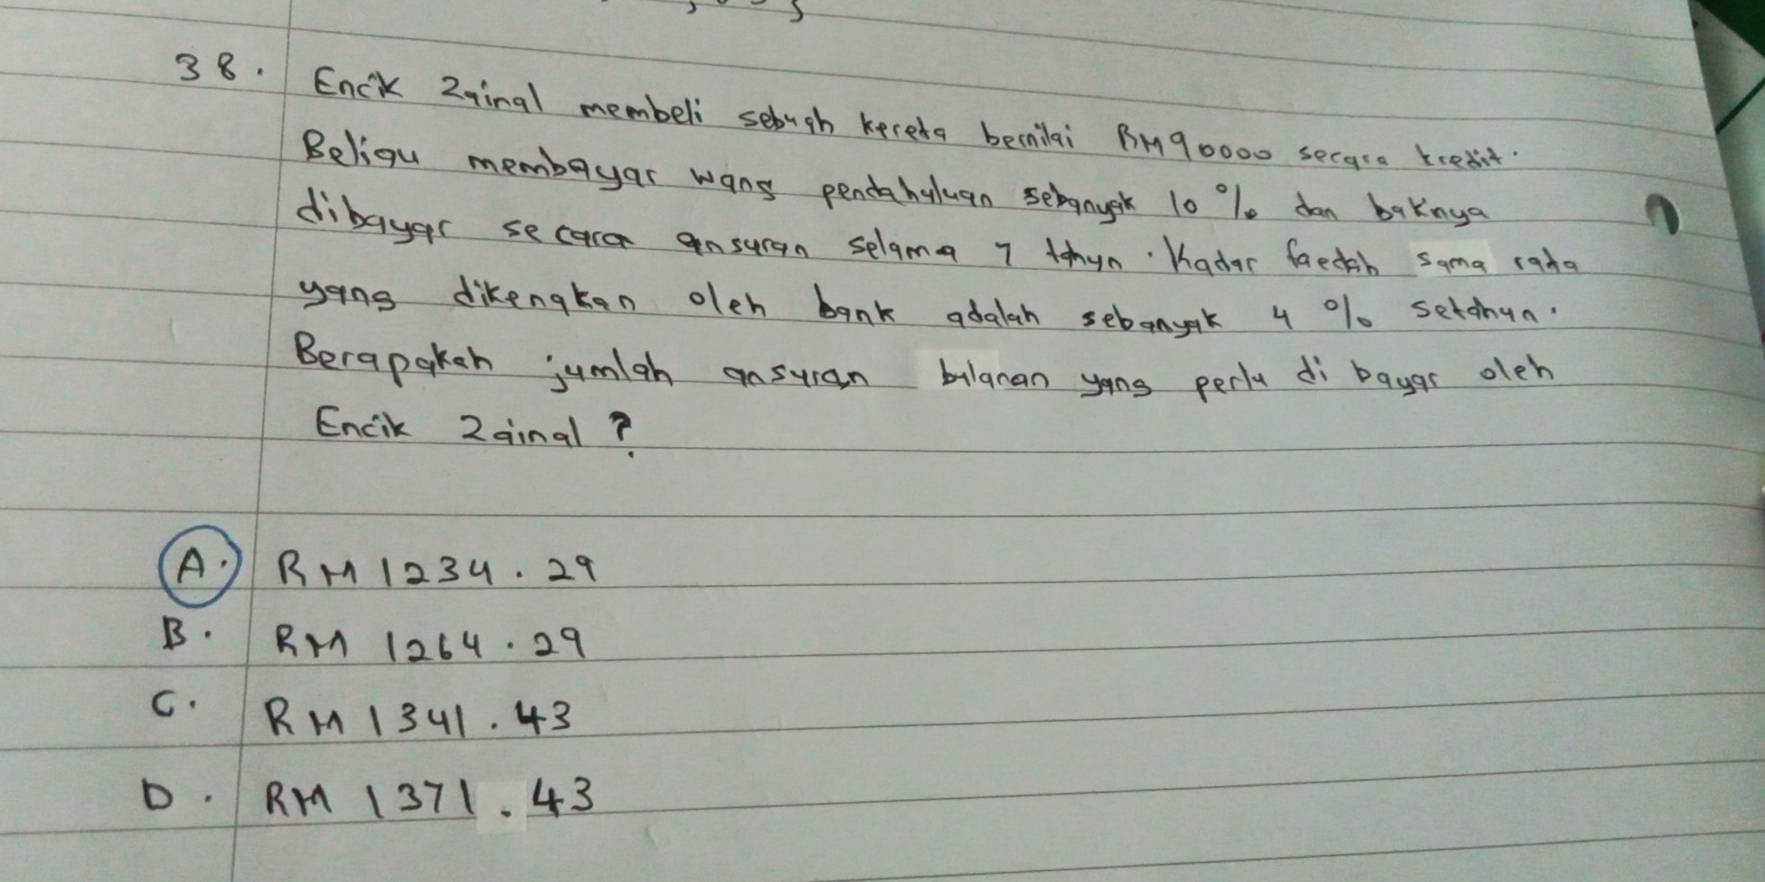 38. Encik Zainal membeli sebuah kereta bernilai RM90000 secara kredit.
Beliau membayar wang pendahuluan sebanyak 10 % dan bakinya
dibayar secara ansuran selama 7 tahun. Kadar faedah sama rata
yang dikenakan oleh bank adalah sebanyak 4 % setahun.
Berapakah jumlah ansuran bulanan yang perlu di bayar oleh
Encik Zainal ?
A. RM 1234.29
B. RM 1264.29
C. RM 1341.43
D. RM 1371.43